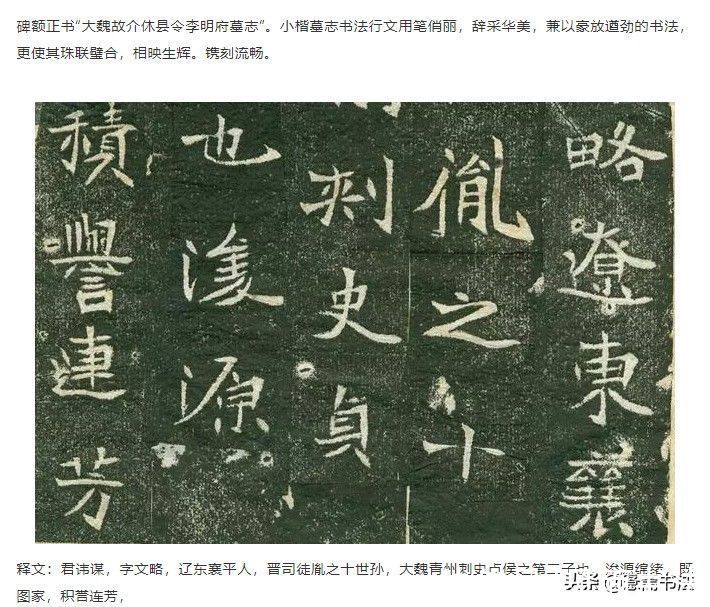 碑额正书“大魏故介休县令李明府墓志”。小楷墓志书法行文用笔俏丽，辞采华美，兼以豪放遒劲的书法，
更使其珠联璧合，相映生辉。镌刻流畅。
略遼東襄
胤之十
刺史貞
也浚源
積譽連芳
释文：君讳谋，字文略，辽东襄平人，晋司徒胤之十世孙，大魏青州刺史贞侯之第二子也，浚源绵绪，既
图家，积誉连芳，
头条 @书法